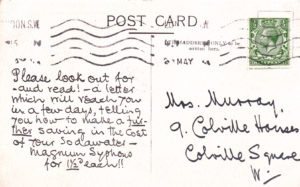 POST CARD
Please look out for
- and read! - a letter
which will reach you
in a few days, telling
you how to make a fur-
ther saving in the Cost
of your Sodawater -
Magnum Syphons
for 1½d each!!
Mrs. Murray,
9. Colville Houses
Colville Square
W.